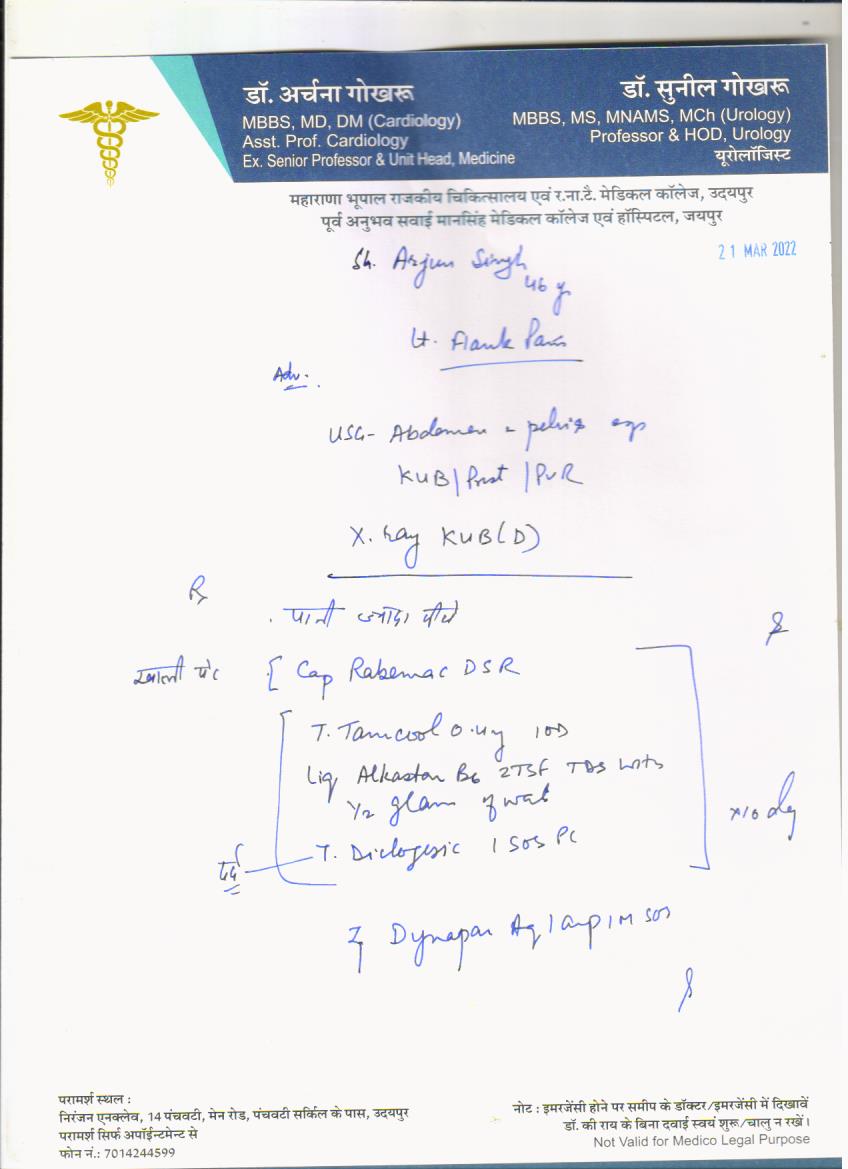 डॉ. अर्चना गोखरू
MBBS, MD, DM (Cardiology)
Asst. Prof. Cardiology
Ex. Senior Professor & Unit Head, Medicine
डॉ. सुनील गोखरू
MBBS, MS, MNAMS, MCh (Urology)
Professor & HOD, Urology
यूरोलॉजिस्ट
महाराणा भूपाल राजकीय चिकित्सालय एवं र.ना.टै. मेडिकल कॉलेज, उदयपुर
पूर्व अनुभव सवाई मानसिंह मेडिकल कॉलेज एवं हॉस्पिटल, जयपुर
21 MAR 2022
Sh. Arjun Singh
46 y
Lt. Flank Pain
Adv.
USG- Abdomen - pelvis
KUB/Prost/PVR
X. Ray KUB(D)
Rx
पानी ज्यादा पीये
खाली पेट Cap Rabemac DSR
T. Tamcool 0.4mg 1OD
Liq Alkaston B6 2TSF TDS with
1/2 glass of wat
x10 day
दर्द T. Diclogesic 1 SOS PC
Dynapar Aq 1 amp IM SOS
परामर्श स्थल :
निरंजन एनक्लेव, 14 पंचवटी, मेन रोड, पंचवटी सर्किल के पास, उदयपुर
परामर्श सिर्फ अपॉईन्टमेन्ट से
फोन नं.: 7014244599
नोट : इमरजेंसी होने पर समीप के डॉक्टर/इमरजेंसी में दिखावें
डॉ. की राय के बिना दवाई स्वयं शुरू/चालु न रखें।
Not Valid for Medico Legal Purpose